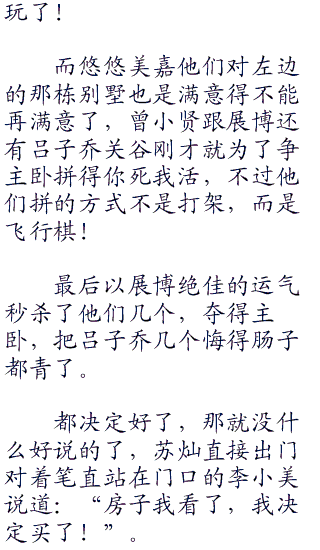 玩了！
而悠悠美嘉他们对左边
的那栋别墅也是满意得不能
再满意了，曾小贤跟展博还
有吕子乔关谷刚才就为了争
主卧拼得你死我活，不过他
们拼的方式不是打架，而是
飞行棋！
最后以展博绝佳的运气
秒杀了他们几个，夺得主
卧，把吕子乔几个悔得肠子
都青了。
都决定好了，那就没什
么好说的了，苏灿直接出门
对着笔直站在门口的李小美
说道：“房子我看了，我决
定买了！”。